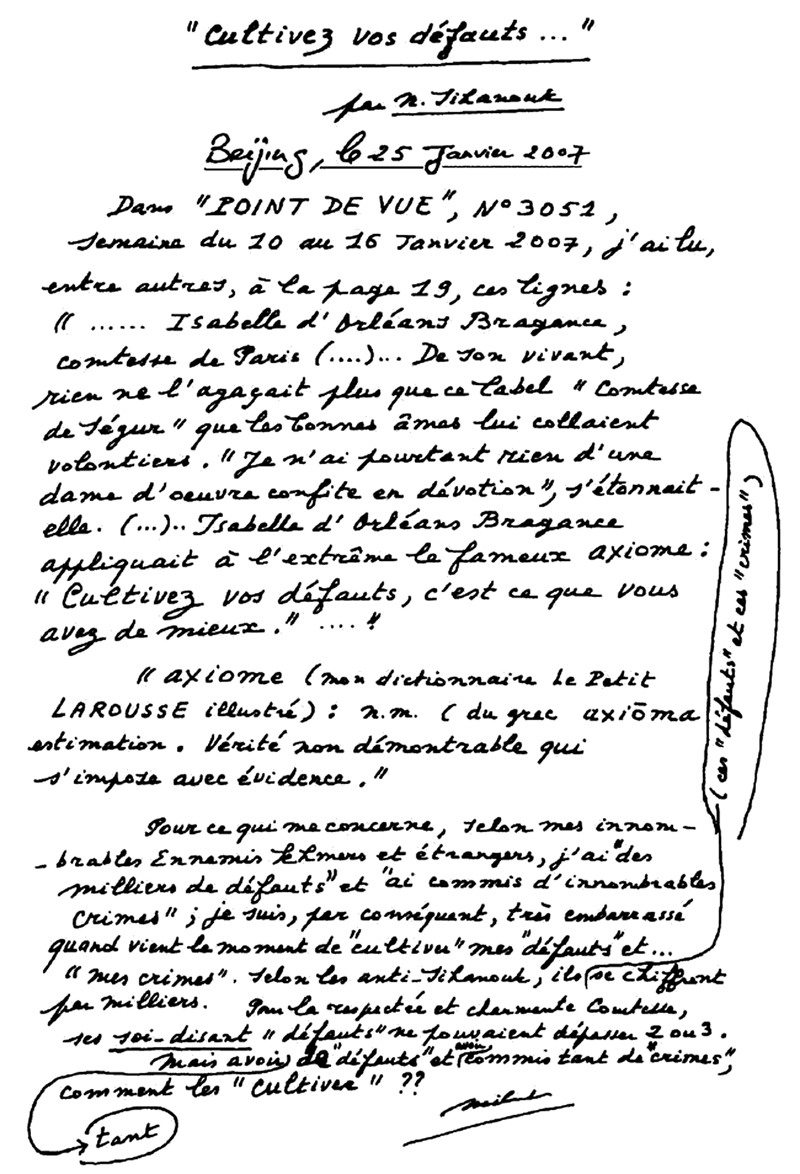 "Cultivez vos défauts ..."
par N. Sihanouk
Beijing, le 25 Janvier 2007
Dans "POINT DE VUE", N° 3051,
semaine du 10 au 16 Janvier 2007, j'ai lu,
entre autres, à la page 19, ces lignes :
" ...... Isabelle d'Orléans Bragance,
comtesse de Paris (....)... De son vivant,
rien ne l'agaçait plus que ce label "Comtesse
de Ségur" que les bonnes âmes lui collaient
volontiers. "Je n'ai pourtant rien d'une
dame d'oeuvre confite en dévotion", s'étonnait-
elle. (...).. Isabelle d'Orléans Bragance
appliquait à l'extrême le fameux axiome :
"Cultivez vos défauts, c'est ce que vous
avez de mieux." ...."
"axiome (mon dictionnaire Le Petit
LAROUSSE illustré) : n.m. (du grec axiōma
estimation. Vérité non démontrable qui
s'impose avec évidence."
Pour ce qui me concerne, selon mes innom-
-brables Ennemis Khmers et étrangers, j'ai "des
milliers de défauts" et "ai commis d'innombrables
crimes" ; je suis, par conséquent, très embarrassé
quand vient le moment de "cultiver" mes "défauts" et...
"mes crimes". Selon les anti-Sihanouk, ils se chiffrent
(ces "défauts" et ces "crimes")
par milliers. Pour la respectée et charmante Comtesse,
ses soi-disant "défauts" ne pouvaient dépasser 2 ou 3.
Mais avoir de "défauts" et avoir commis tant de "crimes",
tant
comment les "cultiver" ??